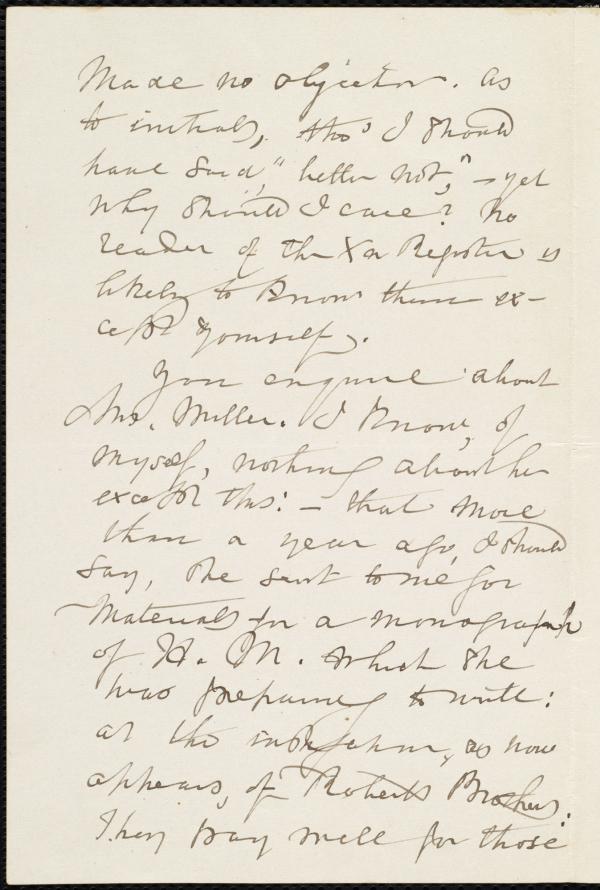 made no objection. As
to initials, tho' I should
have said, "better not," – yet
why should I care? No
reader of the Xn Register is
likely to know them ex-
cept yourself.
You enquire about
Mrs. Miller. I know, of
myself, nothing about her
except this: – that more
than a year ago, I should
say, she sent to me for
materials for a monograph
of H. M. which she
was preparing to write:
at the instigation, as now
appears, of Roberts Brothers.
They pay well for those